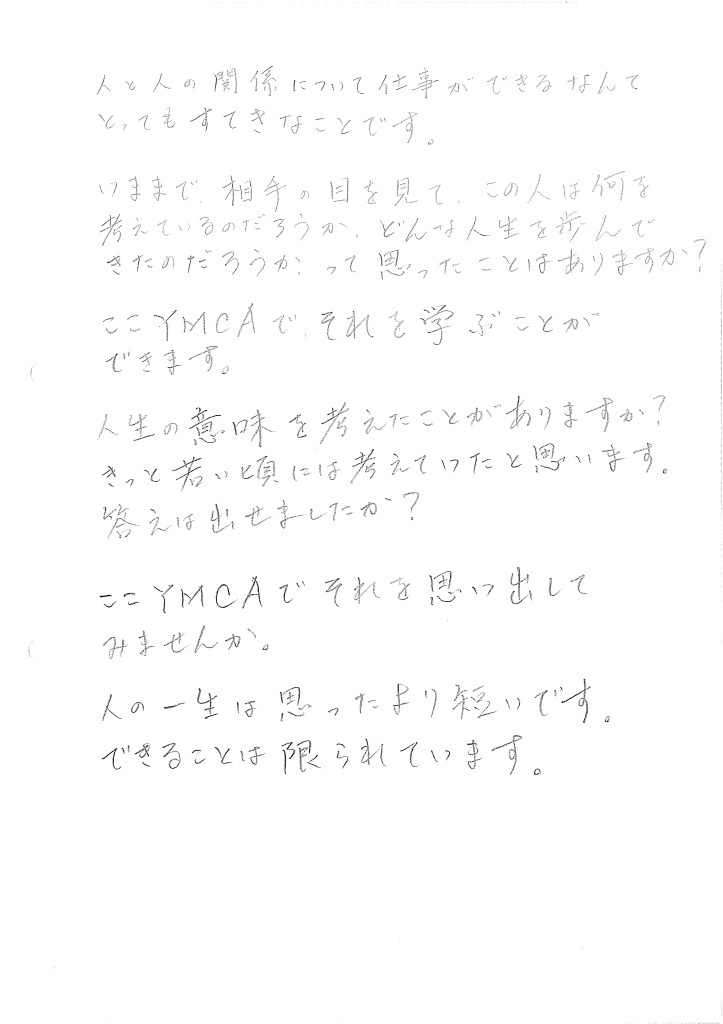 人と人の関係について仕事ができるなんて
とってもすてきなことです。
いままで、相手の目を見て、この人は何を
考えているのだろうか、どんな人生を歩んで
きたのだろうか、って思ったことはありますか？
ここYMCAで、それを学ぶことが
できます。
人生の意味を考えたことがありますか？
きっと若い頃には考えていたと思います。
答えは出せましたか？
ここYMCAでそれを思い出して
みませんか。
人の一生は思ったより短いです。
できることは限られています。